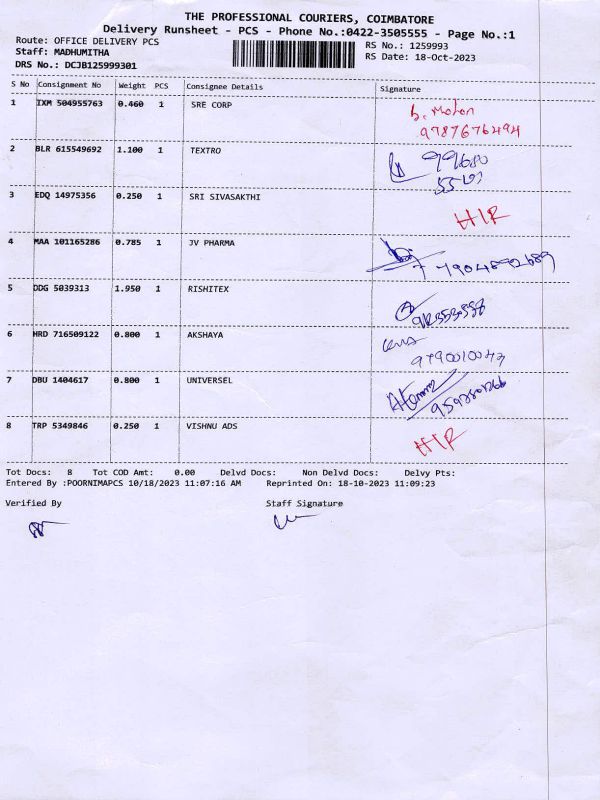 THE PROFESSIONAL COURIERS, COIMBATORE
Delivery Runsheet - PCS - Phone No.:0422-3505555 - Page No.:1
Route: OFFICE DELIVERY PCS RS No.: 1259993
Staff: MADHUMITHA RS Date: 18-Oct-2023
DRS No.: DCJB125999301
S No Consignment No Weight PCS Consignee Details Signature
1 IXM 504955763 0.460 1 SRE CORP b. Mohan
9787676494
2 BLR 615549692 1.100 1 TEXTRO
3 EDQ 14975356 0.250 1 SRI SIVASAKTHI HIR
4 MAA 101165286 0.785 1 JV PHARMA
5 DDG 5039313 1.950 1 RISHITEX
6 HRD 716509122 0.800 1 AKSHAYA
7 DBU 1404617 0.800 1 UNIVERSEL
8 TRP 5349846 0.250 1 VISHNU ADS HIR
Tot Docs: 8 Tot COD Amt: 0.00 Delvd Docs: Non Delvd Docs: Delvy Pts:
Entered By :POORNIMAPCS 10/18/2023 11:07:16 AM Reprinted On: 18-10-2023 11:09:23
Verified By Staff Signature